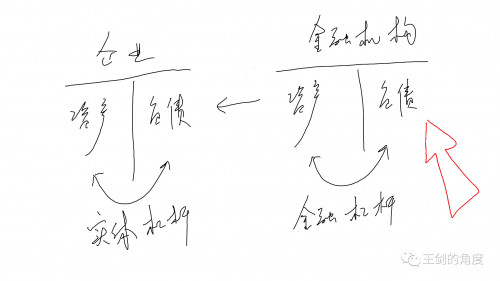 企业
资产 负债
实体杠杆
金融机构
资产 负债
金融杠杆
王剑的角度